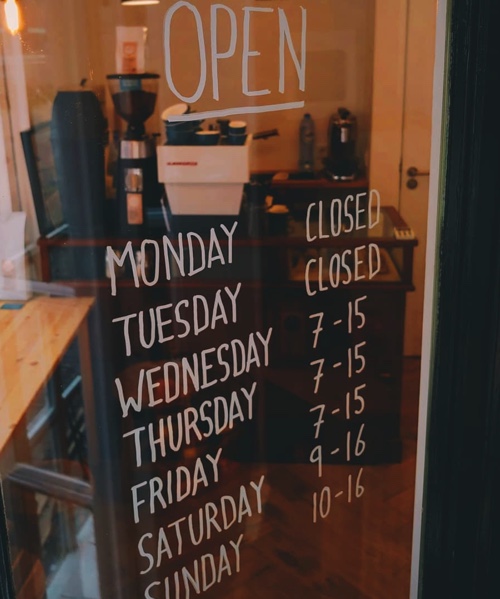 OPEN
MONDAY CLOSED
TUESDAY CLOSED
WEDNESDAY 7-15
THURSDAY 7-15
FRIDAY 7-15
SATURDAY 9-16
SUNDAY 10-16